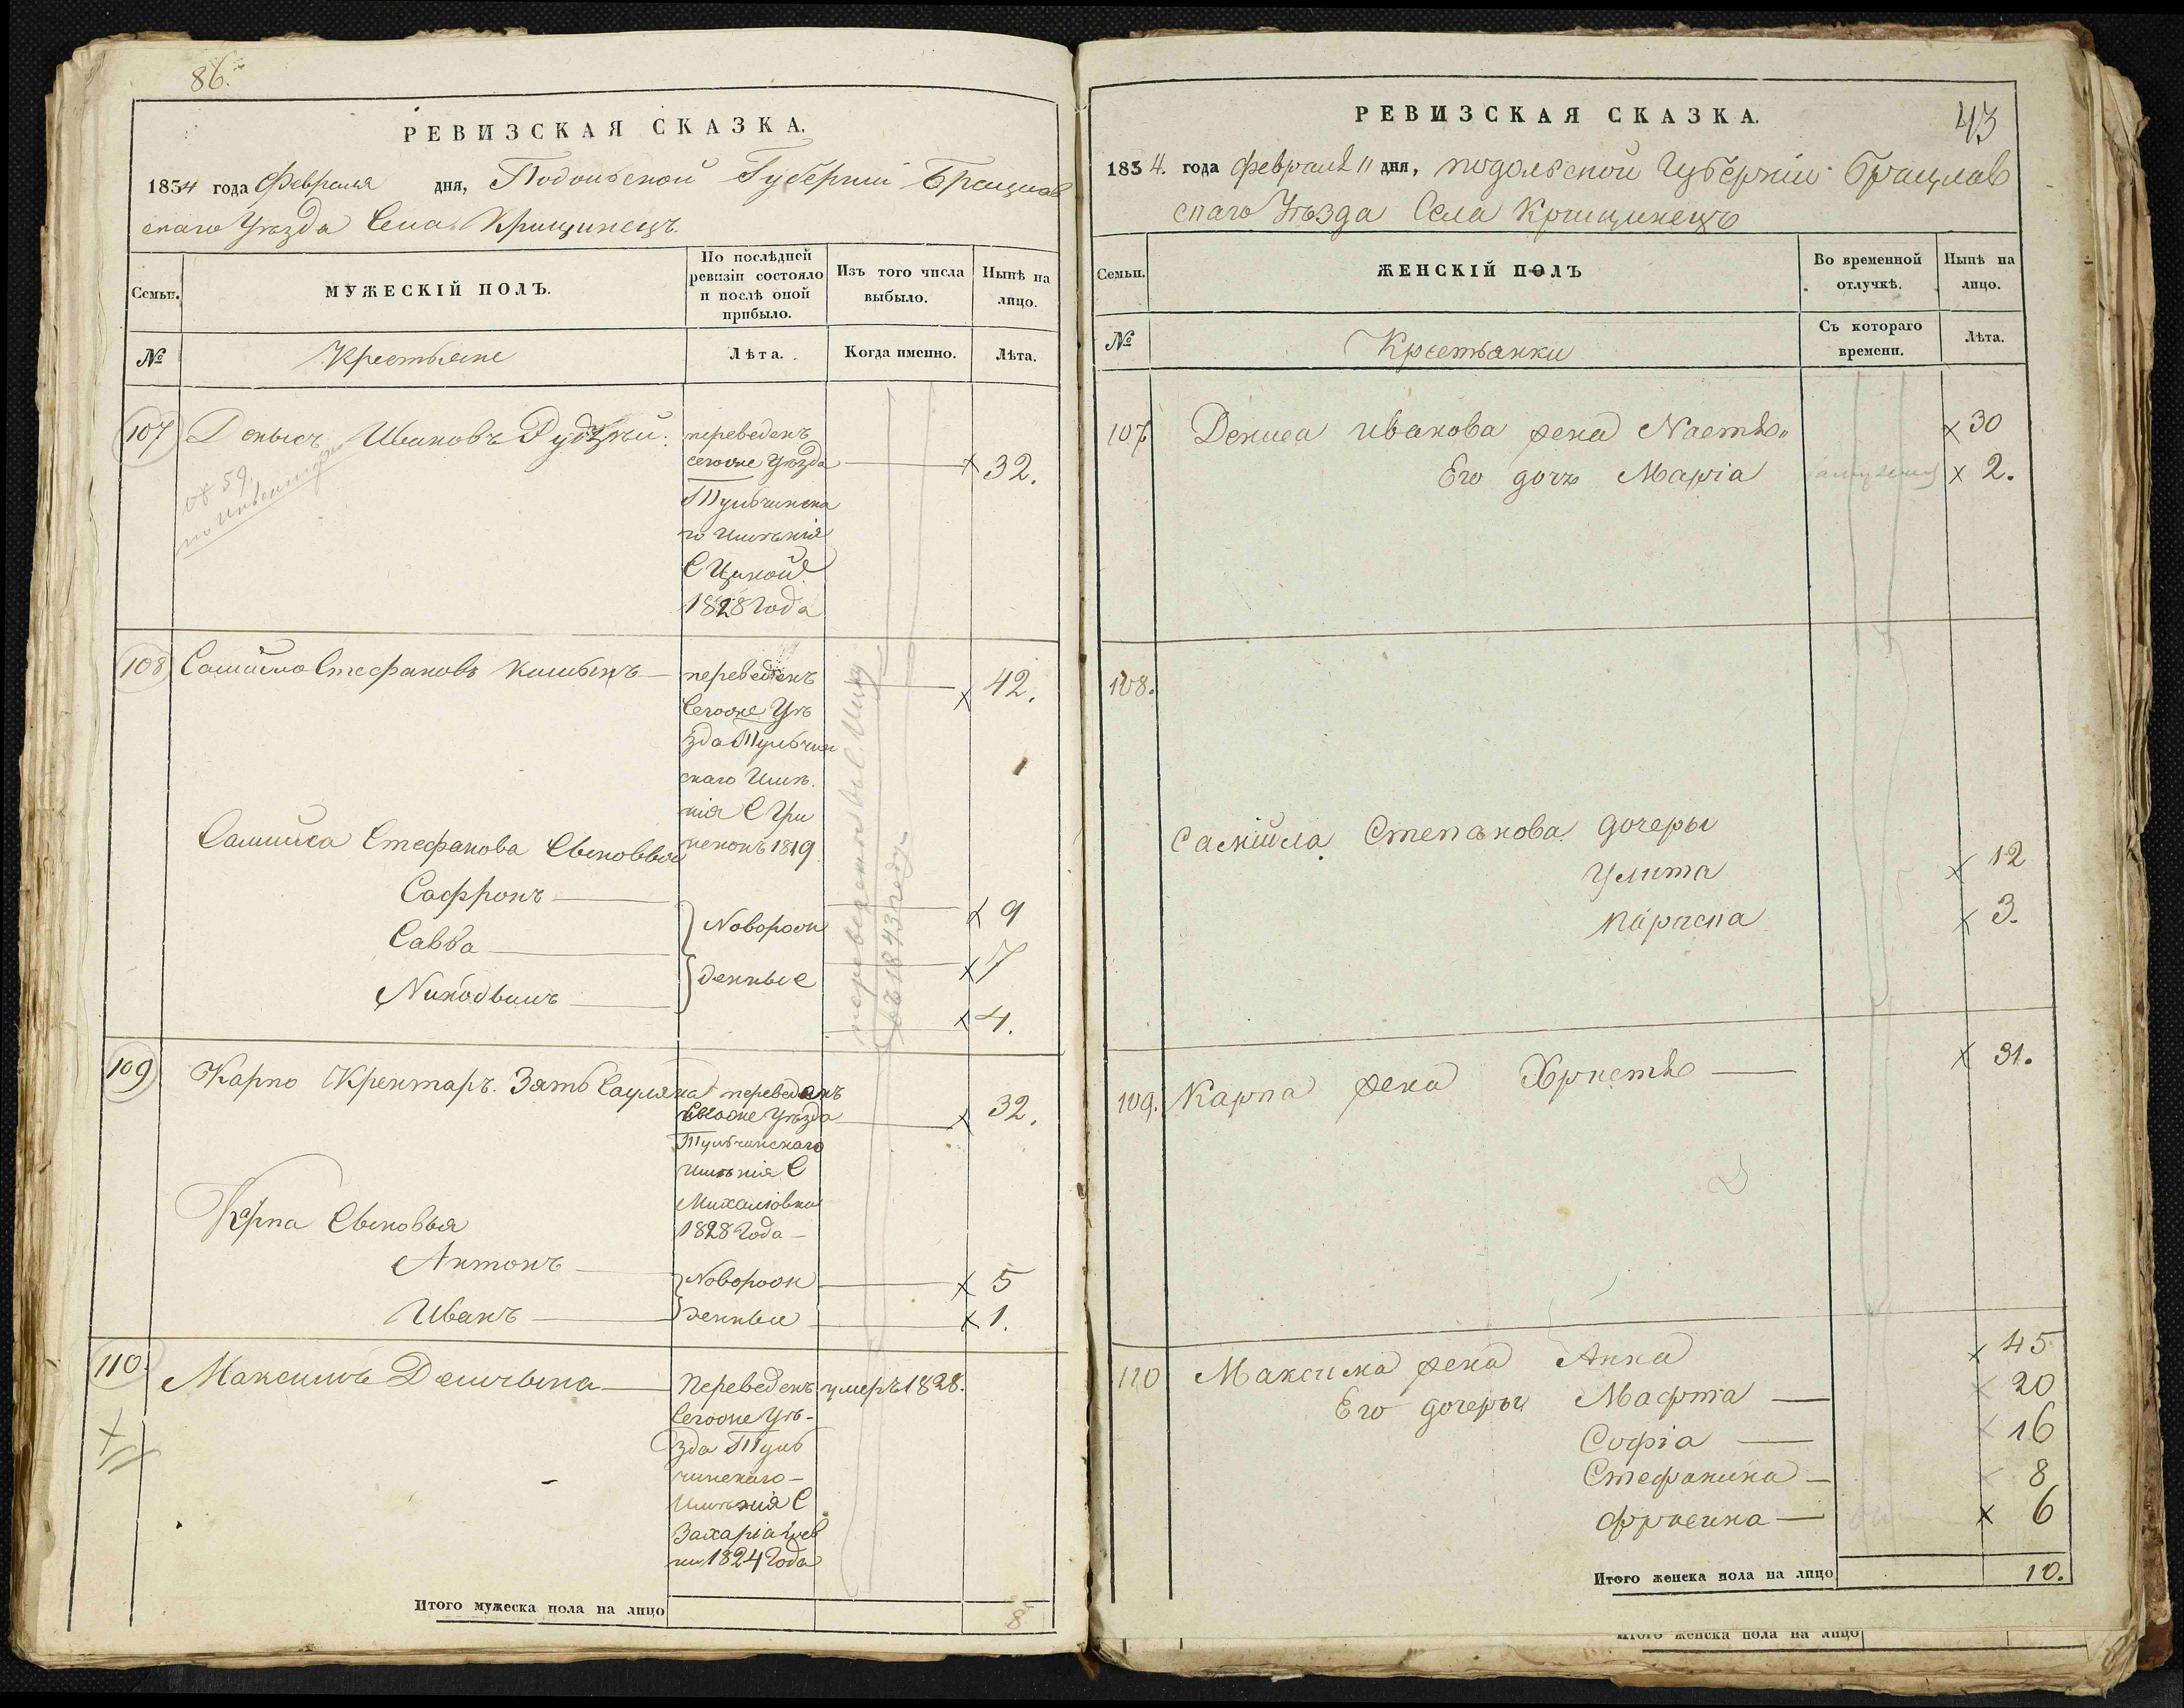 86.
РЕВИЗСКАЯ СКАЗКА.
1834 года Февраля дня, Подольской Губерніи Брацлав
скаго Уѣзда Села Крищинецъ.
Семьи.
МУЖЕСКІЙ ПОЛЪ.
По послѣдней
ревизіи состояло
и послѣ оной
прибыло.
Изъ того числа
выбыло.
Нынѣ на
лицо.
№
Крестьяне
Лѣта.
Когда именно.
Лѣта.
107 Денысъ Ивановъ переведенъ
сегоже Уѣзда 32.
Тульчинска
го Имѣнія
С
1828 Года
№ 59.
по Инвентарю
108 Самійло Стефановъ переведенъ 42.
Сегоже Уѣ
зда Тульчин
скаго Имѣ.
нія С
1819
Самійла Стефанова Сыновья
Сафронъ 9
Новорож
Савва 7
денные
Никодымъ 4.
переведенъ
въ 1843 году
109 Карпо Зять переведенъ
Сегоже Уѣзда 32.
Тульчинскаго
имѣнія С
Михайловки
1828 Года
Карпа Сыновья
Антонъ Новорож 5
Иванъ денные 1.
110 Максимъ Переведенъ умеръ 1828.
Сегоже Уѣ-
зда Туль
чинскаго
Имѣнія С
1824 Года
Итого мужеска пола на лицо 8
РЕВИЗСКАЯ СКАЗКА.
43
1834. года февраля 11 дня, подольской Губерніи Брацлав
скаго Уѣзда Села Крищинецъ
Семьи.
ЖЕНСКІЙ ПОЛЪ
Во временной
отлучкѣ.
Нынѣ на
лицо.
№
Крестьянки
Съ котораго
времени.
Лѣта.
107 Дениса иванова жена Настя 30
Его дочъ Марія 2.
108.
Самійла Степанова дочеры
Улита 12
параска 3.
109. Карпа жена Христя 31.
110 Максима жена Анна 45
Его дочеры Марта 20
Софія 16
Стефанина 8
фрасина 6
Итого женска пола на лицо 10.
Итого женска пола на лицо